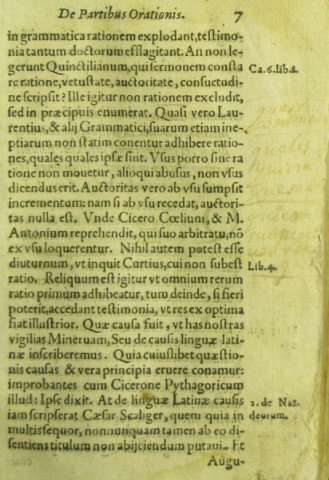 De Partibus Orationis. 7
in grammatica rationem explodant, testimo-
nia tantum doctorum efflagitant. An non le-
gerunt Quinctilianum, qui sermonem consta
re ratione, vetustate, auctoritate, consuetudi-
ne scripsit? Ille igitur non rationem excludit,
sed in præcipuis enumerat. Quasi vero Lau-
rentius, & alij Grammatici, suarum etiam ine-
ptiarum non statim conentur adhibere ratio-
nes, quales quales ipsæ sint. Vsus porro sine ra
tione non mouetur, alioqui abusus, non vsus
dicendus erit. Auctoritas vero ab vsu sumpsit
incrementum: nam si ab vsu recedat, auctori-
tas nulla est. Vnde Cicero Cœlium, & M.
Antonium reprehendit, qui suo arbitratu, nõ
ex vsu loquerentur. Nihil autem potest esse
diuturnum, vt inquit Curtius, cui non subest
ratio. Reliquum est igitur vt omnium rerum
ratio primum adhibeatur, tum deinde, si fieri
poterit, accedant testimonia, vt res ex optima
fiat illustrior. Quæ causa fuit, vt has nostras
vigilias Mineruam, Seu de causis linguæ lati-
næ inscriberemus. Quia cuiuslibet quæstio-
nis causas & vera principia eruere conamur:
improbantes cum Cicerone Pythagoricum
illud: Ipse dixit. At de linguæ Latinæ causis
iam scripserat Cæsar Scaliger, quem quia in
multis sequor, nonnunquam tamen ab eo dis-
sentiens titulum non abijciendum putaui. Et
Augu-
Ca. 6. lib. 1.
Lib. 4.
1. de Nat.
deorum.